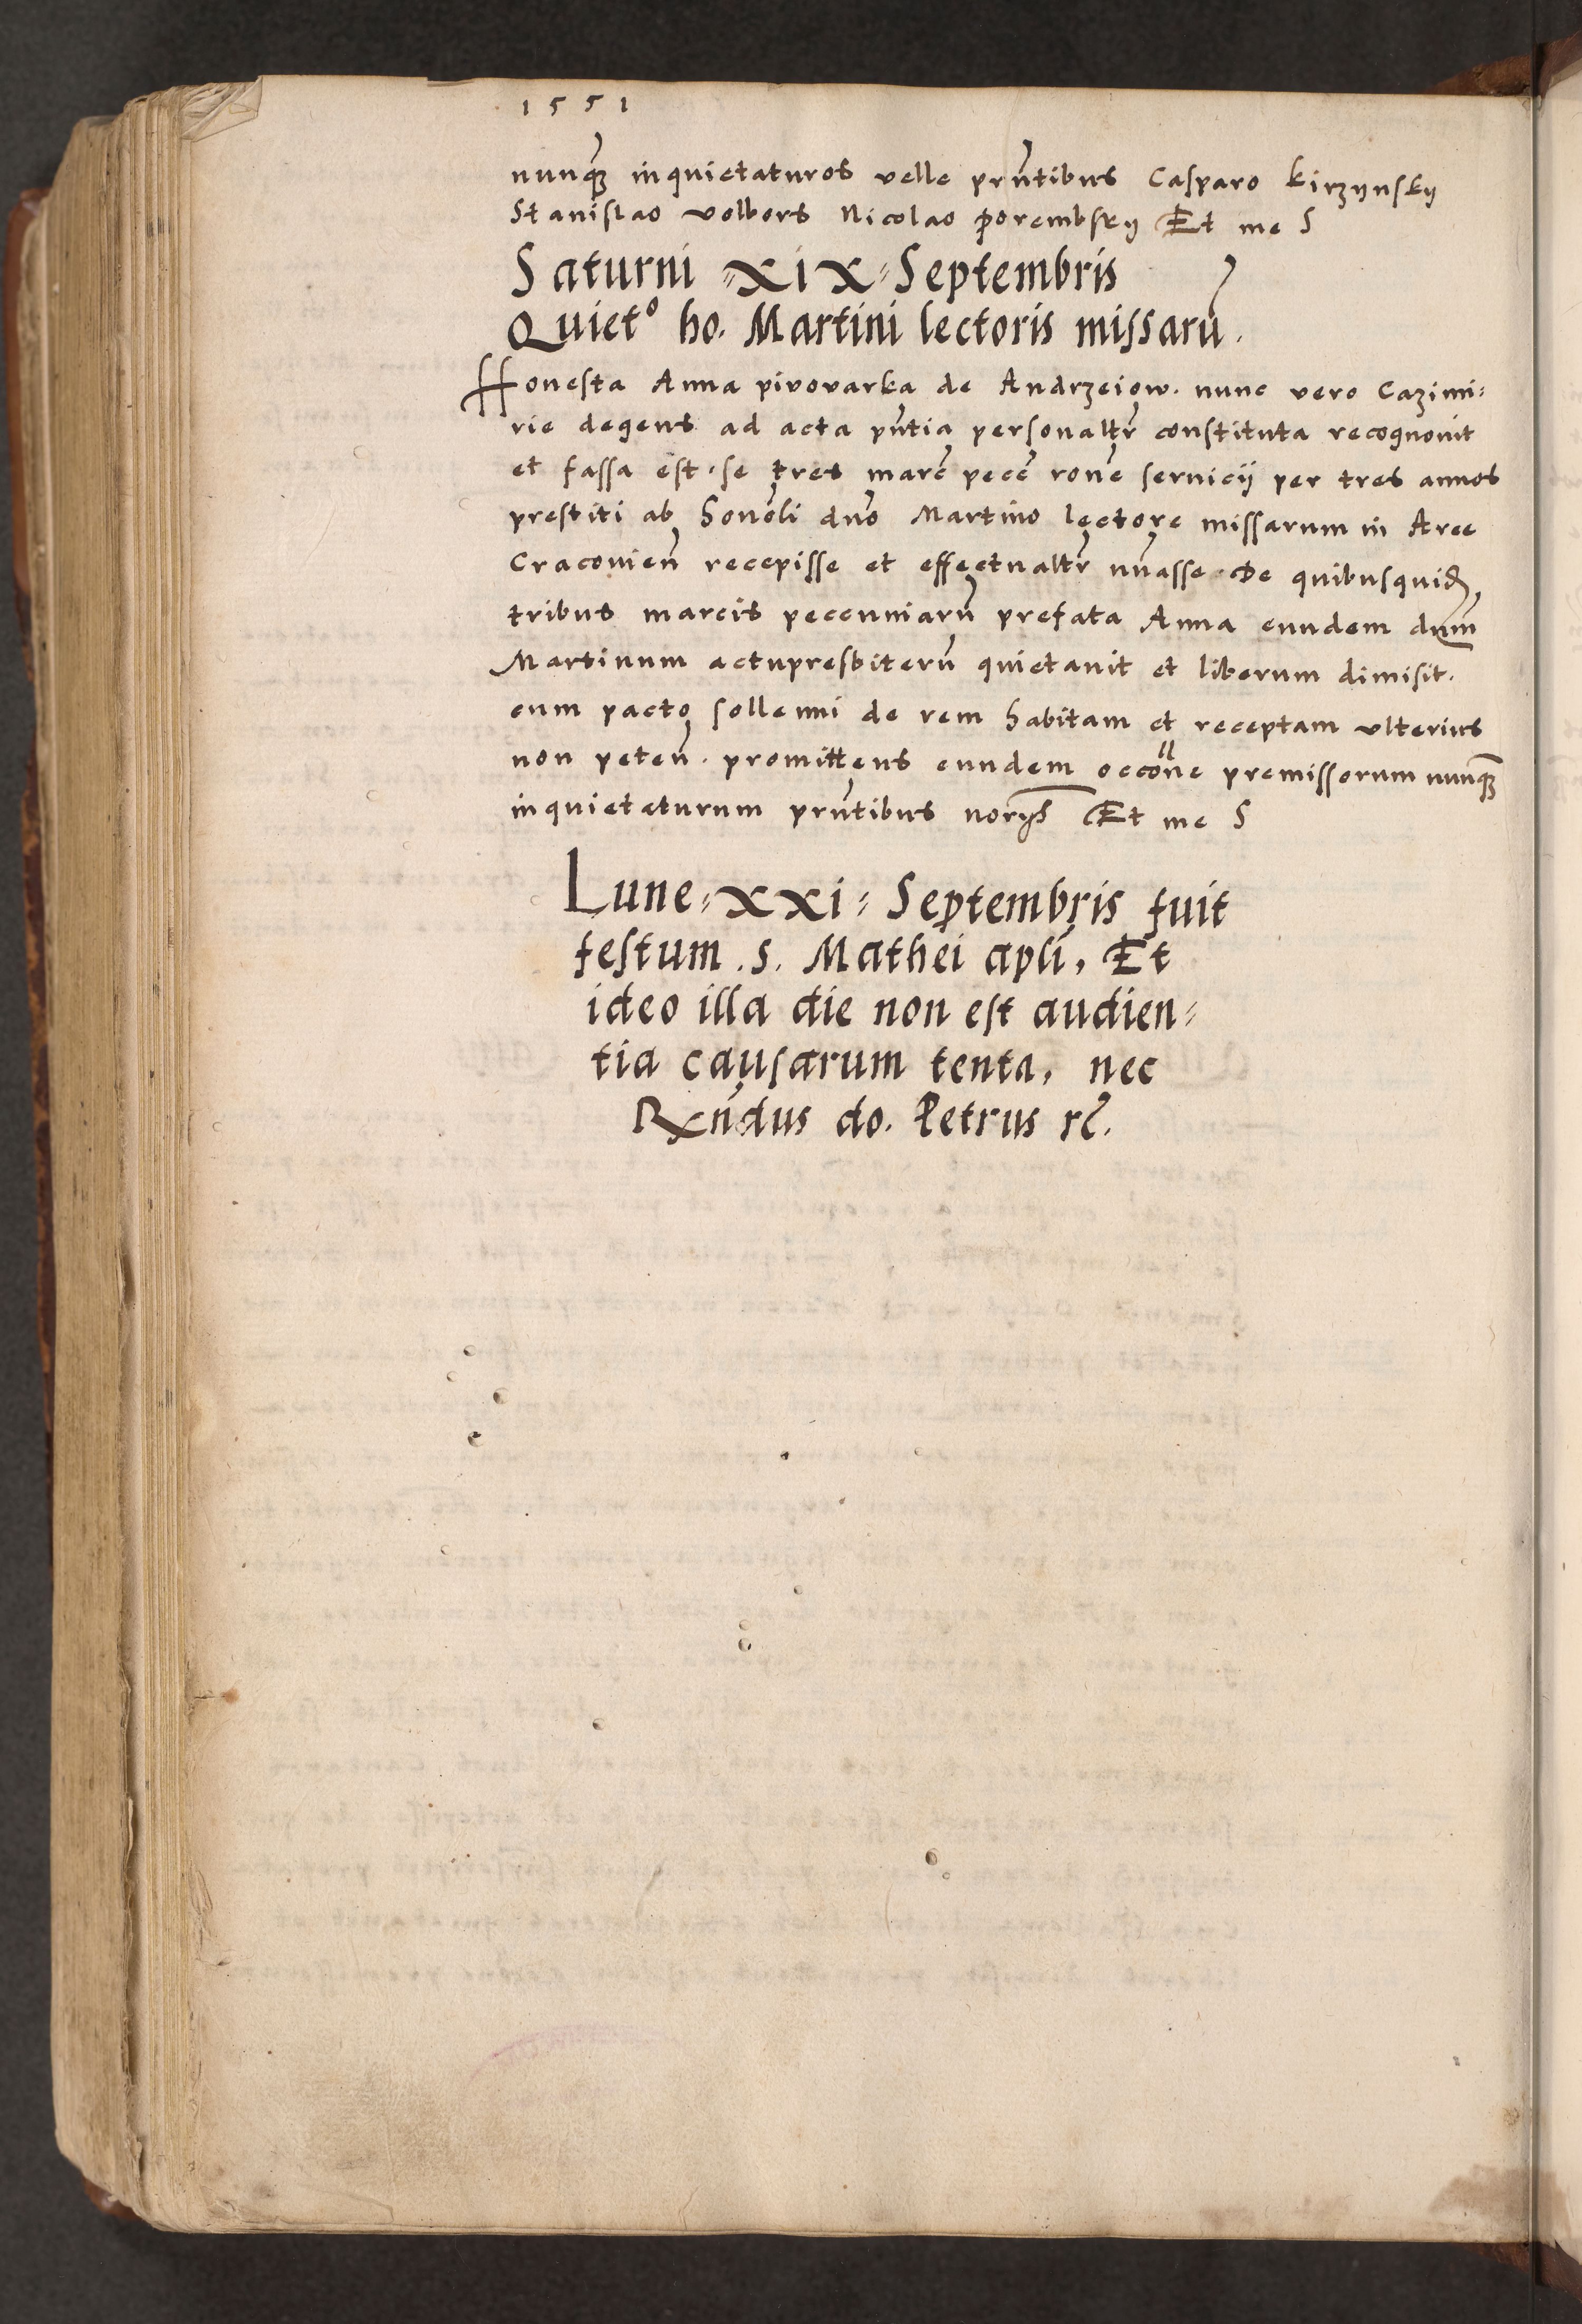 1551
nunq̃ʒ inquietaturos velle prñtibus Casparo Kirzynsky
Stanislao volbors Nicolao porembsky Et me S
Saturni xix Septembris
Quietº ho. Martini lectoris missarũ.
Honesta Anna pivovarka de Andrzeiow. nunc vero Cazimi=
rie degens ad acta pñtia personaltr̃ constituta recognouit
et fassa est. se tres marc̃ pecc̃ rone seruicij per tres annos
prestiti ab honoli dño Martino lectore missarum in Arce
Cracouieñ recepisse et effectualtr̃ nũasse. De quibusquid̃
tribus marcis peccuniarũ prefata Anna eundem dnm̃
Martinum actupresbiterũ quietauit et liberum dimisit.
cum pacto sollenni de rem habitam et receptam vlterius
non peteñ. promittens eundem occone premissorum nunq̃ʒ
inquietaturum prñtibus norijs Et me S
Lune xxi Septembris fuit
festum .s. Mathei apli, Et
ideo illa die non est audien=
tia causarum tenta, nec
Rxñdus do. Petrus rc̃.